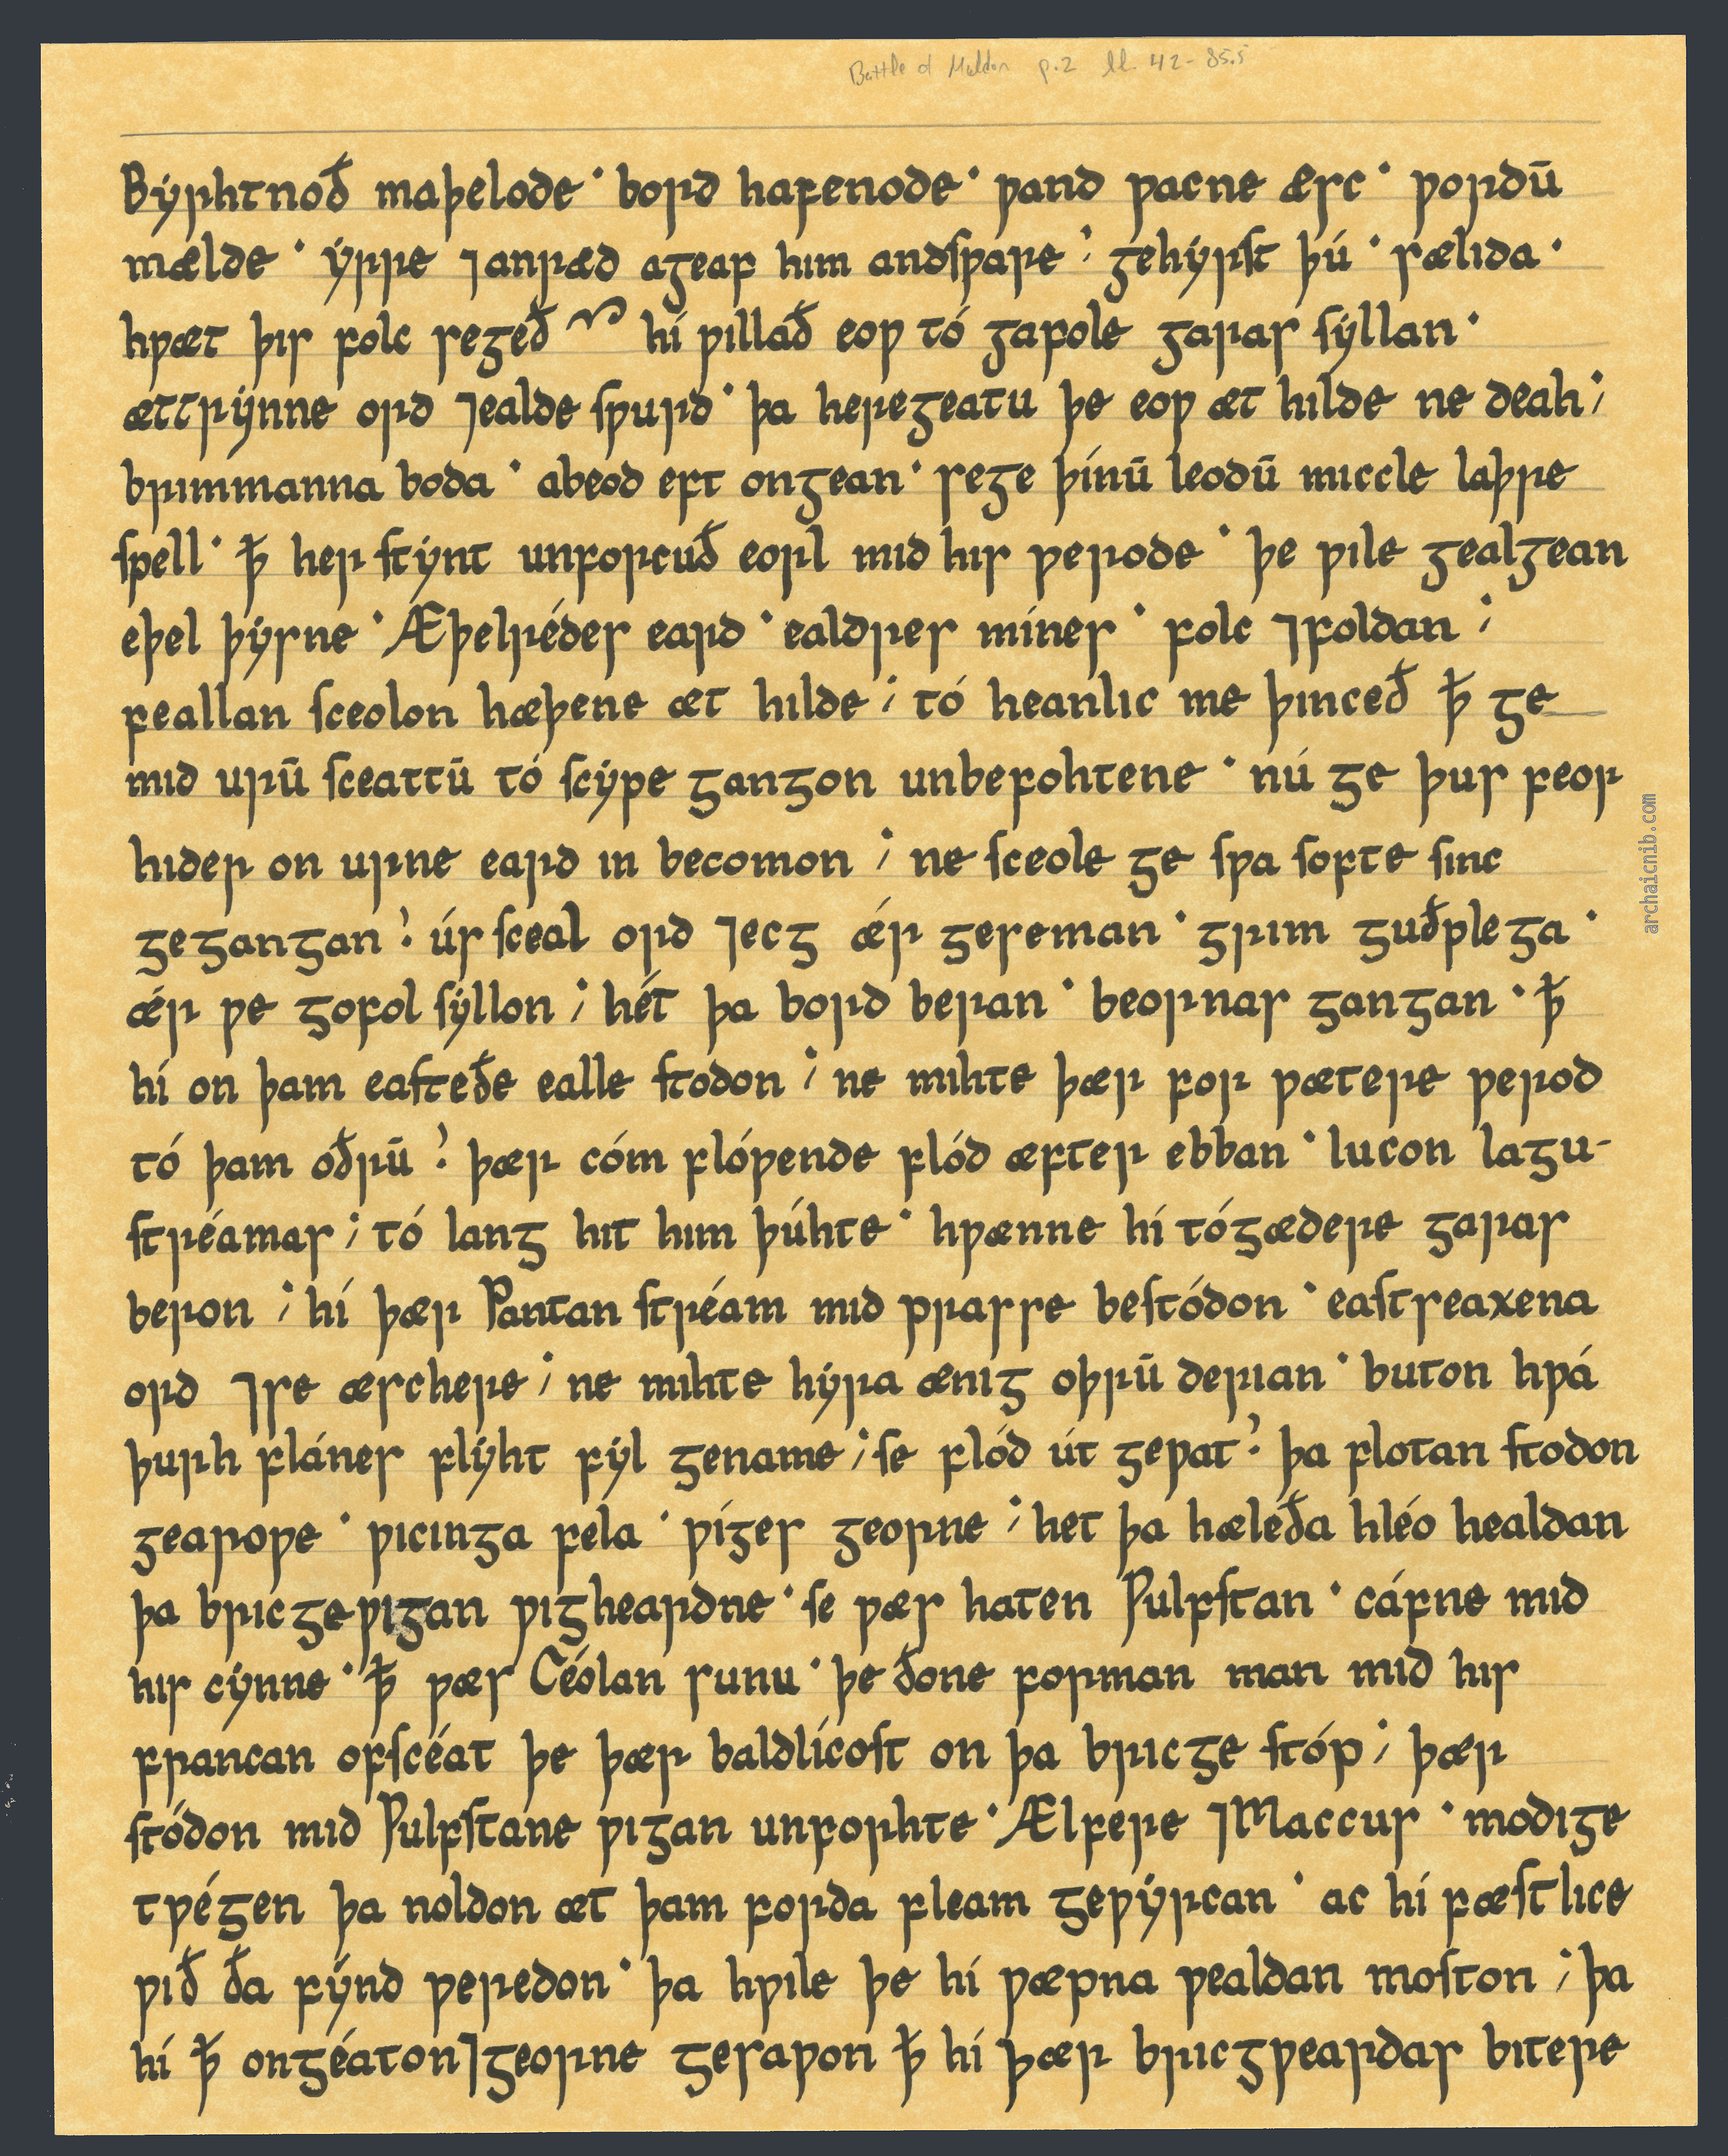 Battle of Maldon p.2 ll 42-85.5
Bẏrhtnoð maþelode · bord hafenode · ƿand ƿacne æsc · ƿordū
mælde · ẏrre ⁊anræd ageaf him andsƿare ⁏ gehẏrst þú · sælida ·
hƿæt þis folc segeð ~ hí ƿillað eoƿ tó gafole garas sẏllan ·
ættrẏnne ord ⁊ealde sƿurd · þa heregeatu þe eoƿ æt hilde ne deah ;
brimmanna boda · abeod eft ongean · sege þínū leodū miccle laþre
spell · ꝥ her stẏnt unforcuð eorl mid his ƿerode · þe ƿile gealgean
eþel þẏsne · Æþelrédes eard · ealdres mínes · folc ⁊foldan ;
feallan sceolon hæþene æt hilde ; tó heanlic me þinceð ꝥ ge
mid urū sceattū tó scẏpe gangon unbefohtene · nú ge þus feor
hider on urne eard in becomon ; ne sceole ge sƿa softe sinc
gegangan ⁏ ús sceal ord ⁊ecg ǽr geseman · grim guðplega ·
ǽr ƿe gofol sẏllon ; hét þa bord beran · beornas gangan · ꝥ
hí on þam easteðe ealle stodon ; ne mihte þær for ƿætere ƿerod
tó þam óðrū ⁏ þær cóm flóƿende flód æfter ebban · lucon lagu-
stréamas ; tó lang hit him þúhte · hƿænne hí tógædere garas
beron ; hí þær Pantan stréam mid prasse bestódon · eastseaxena
ord ⁊se æschere ; ne mihte hẏra ænig oþrū derian · buton hƿá
þurh flánes flẏht fẏl gename ; se flód út geƿat ⁏ þa flotan stodon
gearoƿe · ƿicinga fela · ƿíges georne ; het þa hæleða hléo healdan
þa bricgeƿigan ƿigheardne · se ƿæs haten Ƿulfstan · cáfne mid
his cẏnne · ꝥ ƿæs Céolan sunu · þe ðone forman man mid his
francan ofscéat þe þær baldlícost on þa bricge stóp ; þær
stódon mid Ƿulfstane ƿigan unforhte · Ælfere ⁊Maccus · modige
tƿégen þa noldon æt þam forda fleam geƿẏrcan · ac hí fæstlice
ƿið ða fẏnd ƿeredon · þa hƿile þe hí ƿæpna ƿealdan moston ; þa
hí ꝥ ongéaton ⁊georne gesaƿon ꝥ hí þær bricgƿeardas bitere
archaicnib.com